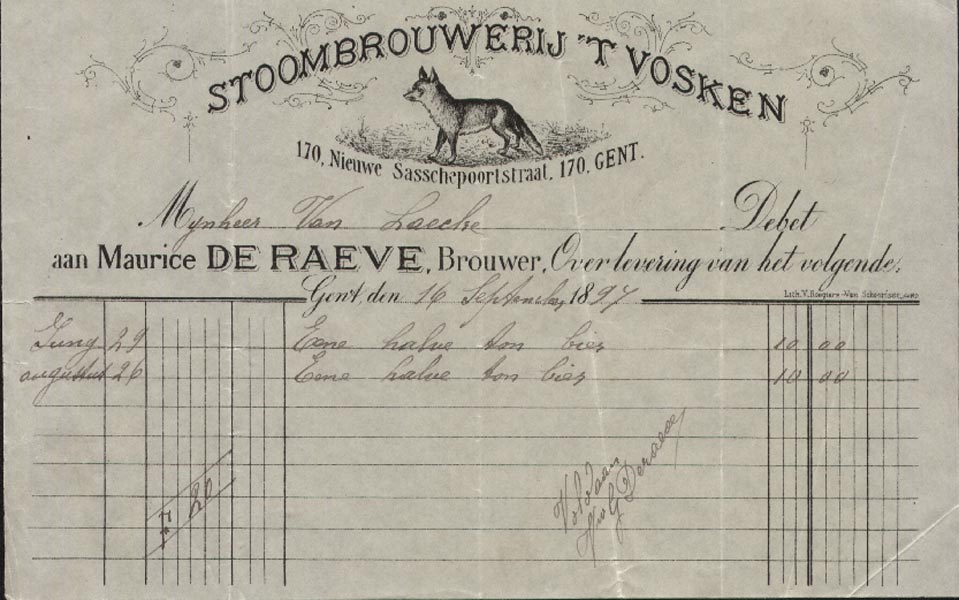 STOOMBROUWERIJ 'T VOSKEN
170, Nieuwe Sasschepoortstraat, 170, GENT.
Mynheer Van Laecke Debet
aan Maurice DE RAEVE, Brouwer, Over levering van het volgende.
Gent, den 16 September 1897
Lith. V.
Juny 29 Eene halve ton bier 10 00
augustus 26 Eene halve ton bier 10 00
Voldaan
20